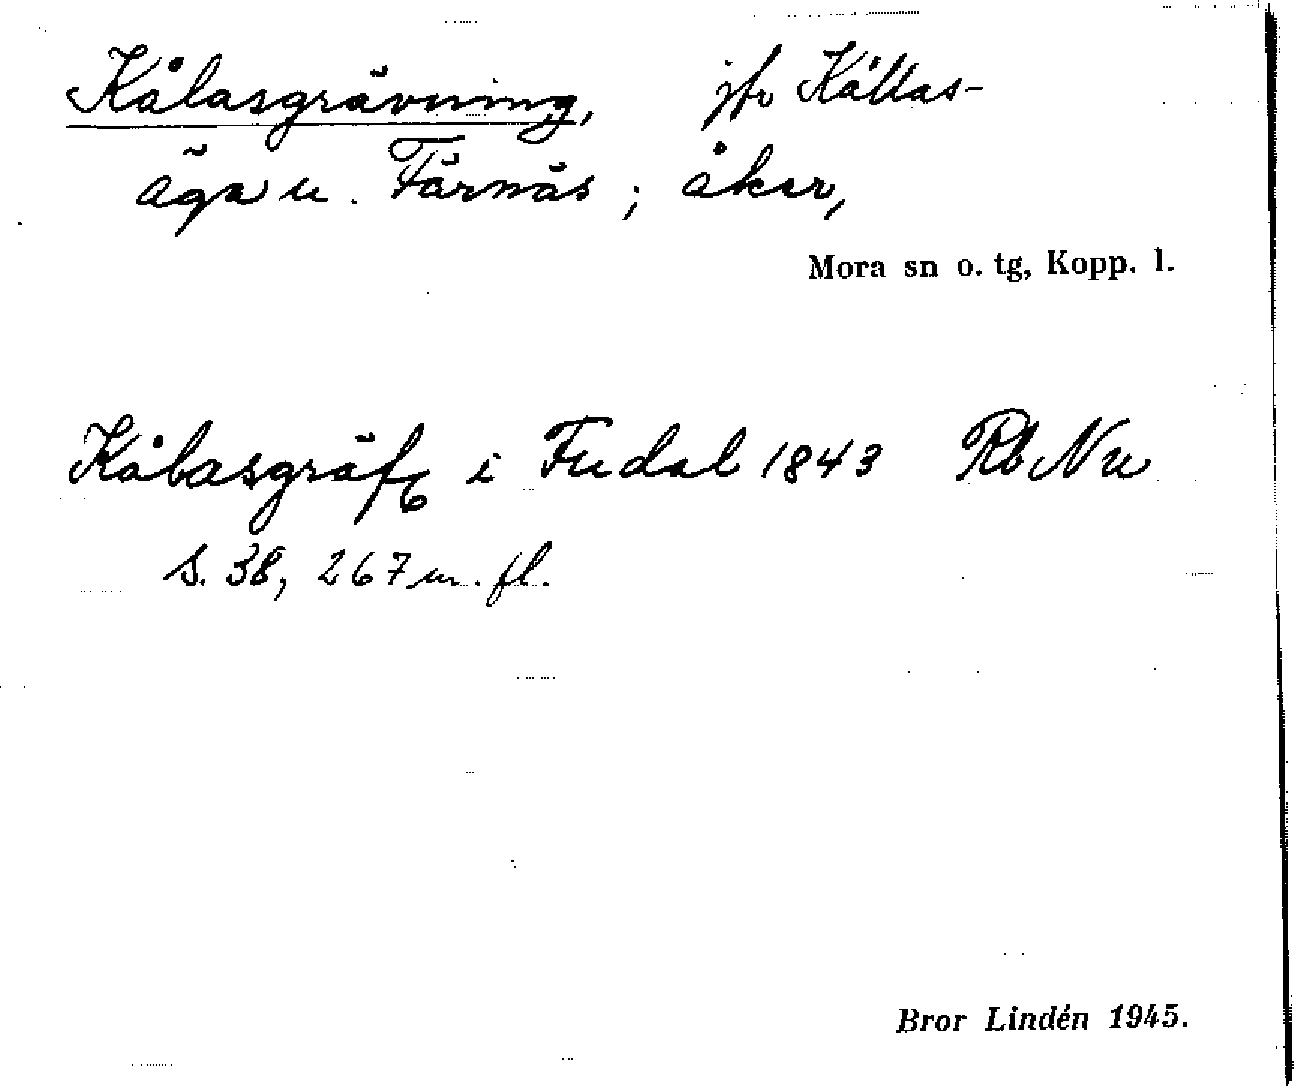 Kålasgrävning, jfr Kållas-
äga u. Färnäs; åker,
Mora sn o. tg, Kopp. l.
Kålasgräfn i Fudal 1843 Rb Nu
s. 38, 267 m. fl.
Bror Lindén 1945.